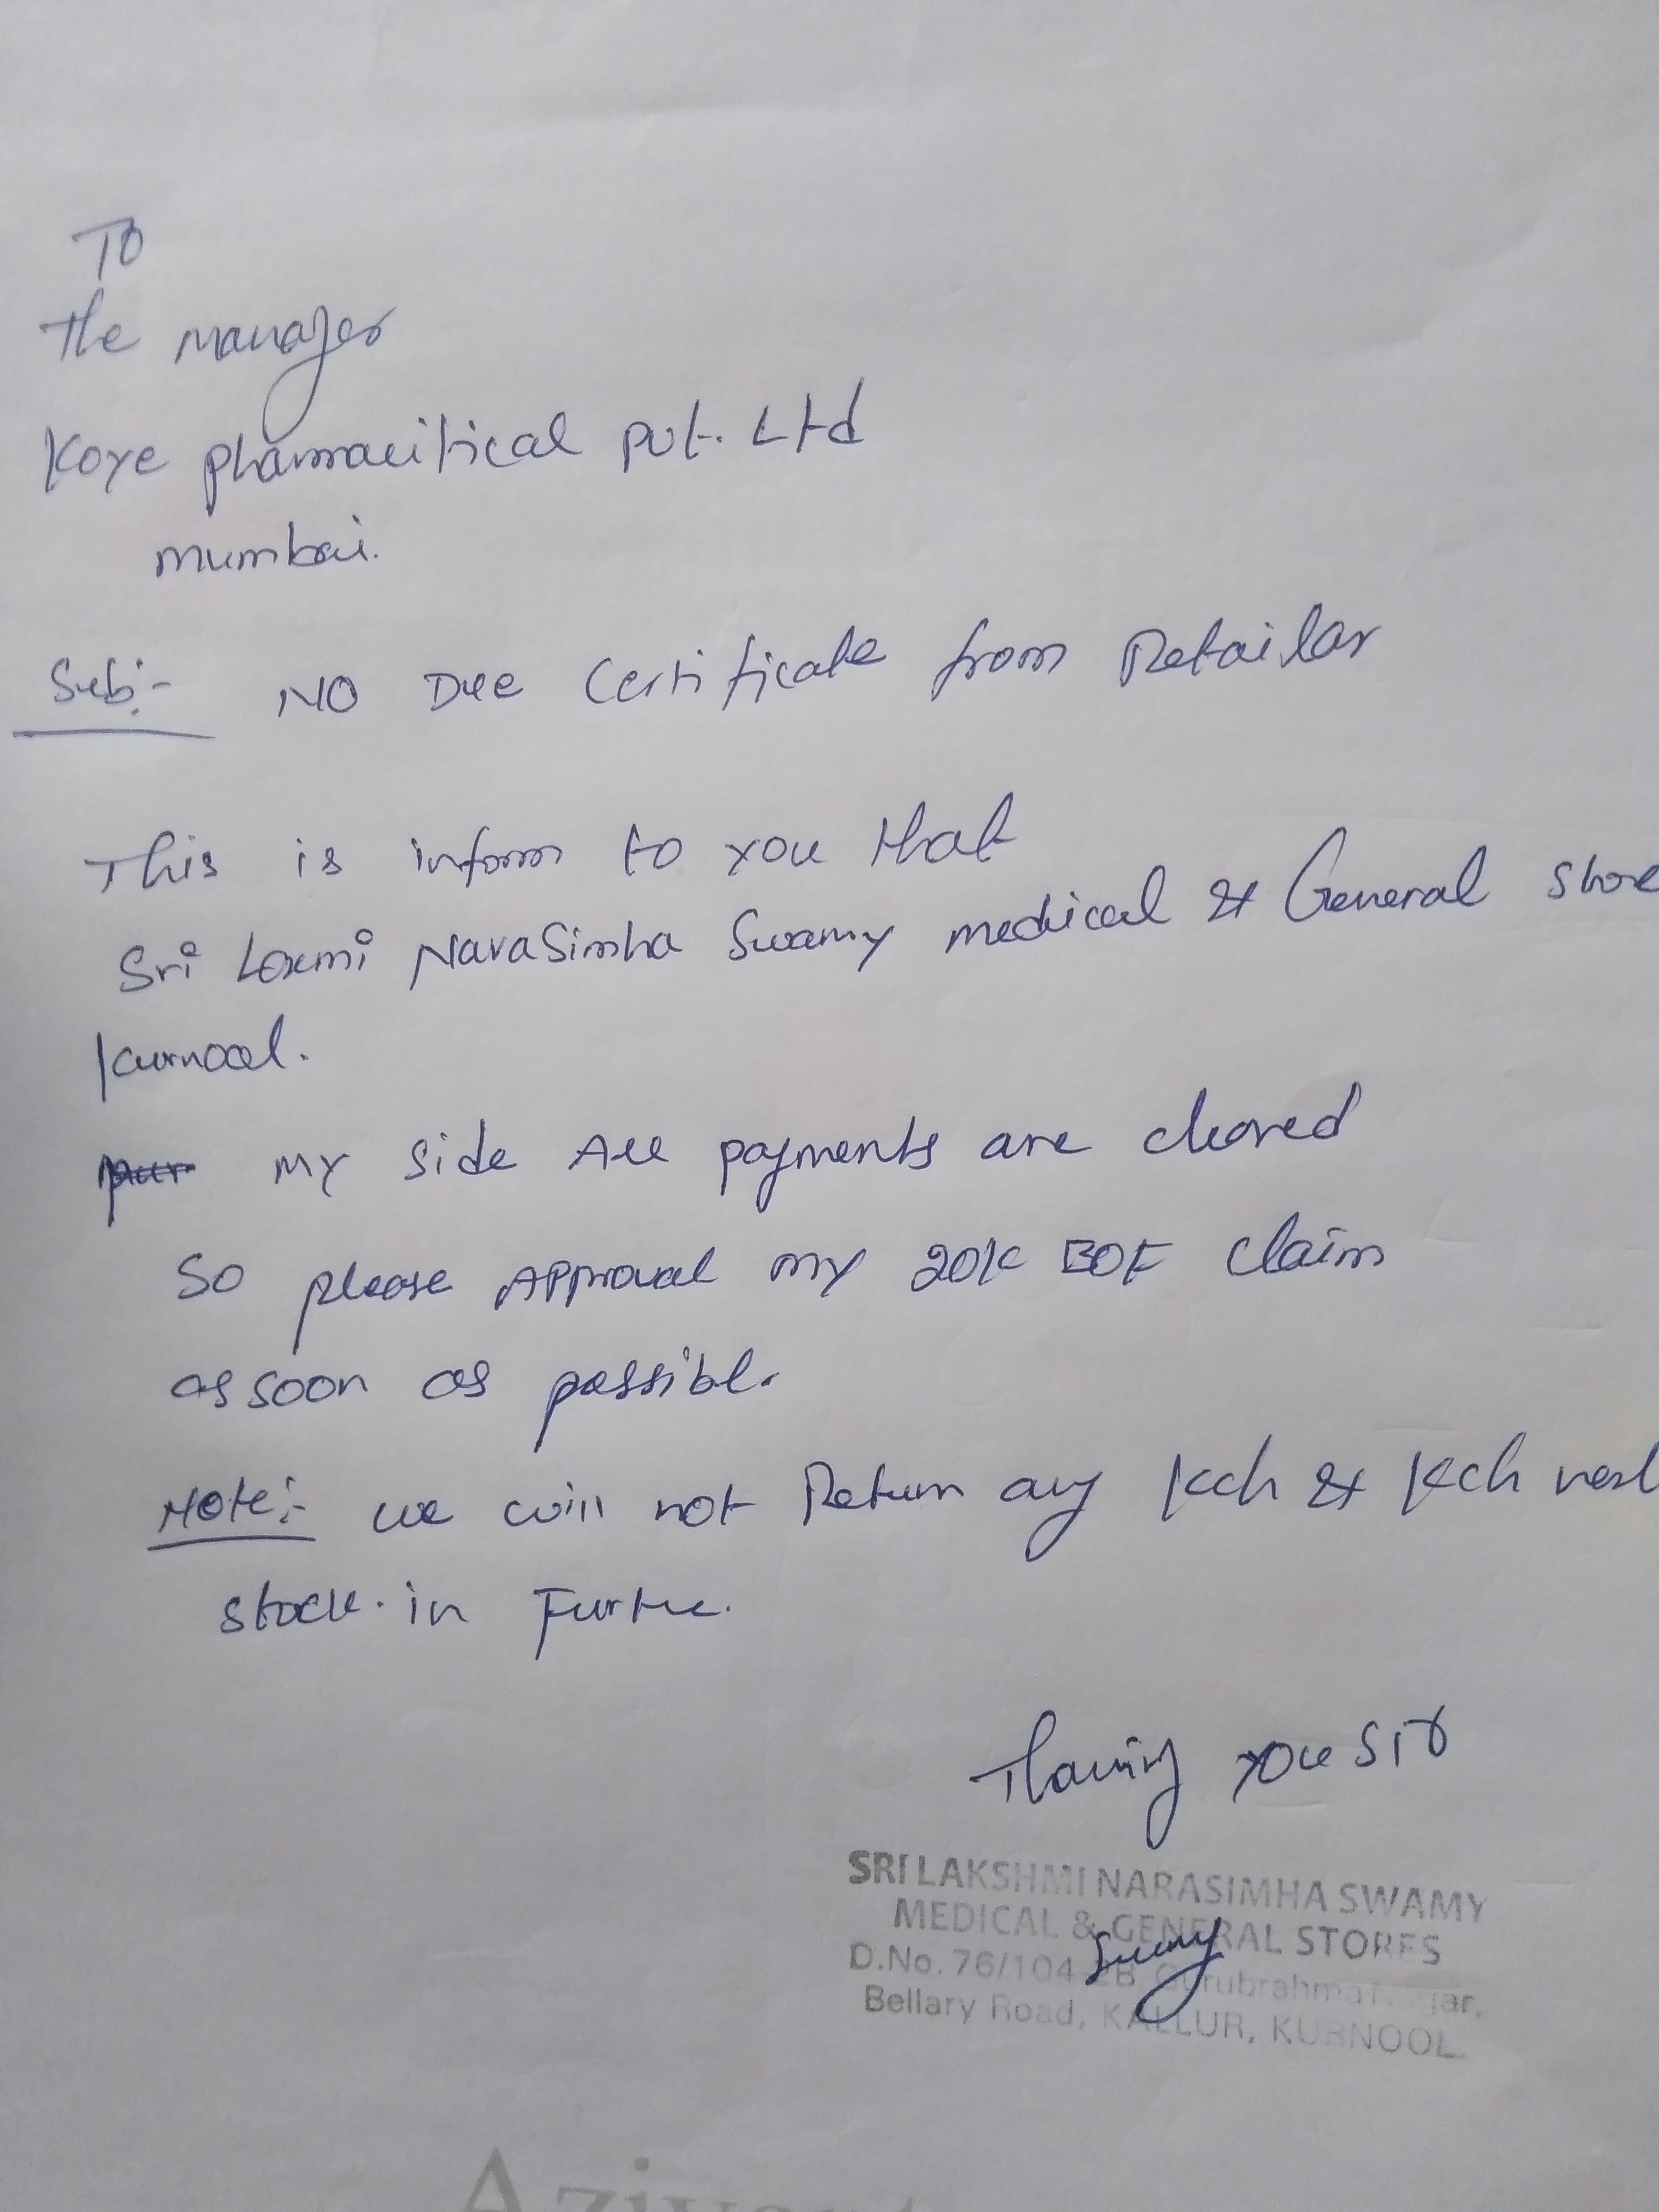 To
The manager
Koye pharmacitical pvt. Ltd
mumbai.
Sub:- NO Due Certificate from Retailar
This is inform to you that
Sri Laxmi NaraSimha Swamy medical & General store
Kurnool.
my side All payments are cleared
So please Approval my 20k EOF claim
as soon as possibl.
Note:- we will not Return any Kch & Kch
stock. in Furthe.
you Sir
SRI LAKSHMI NARASIMHA SWAMY
MEDICAL & GENERAL STORES
D.No. 76/104-2B, Gurubrahma Nagar,
Bellary Road, KALLUR, KURNOOL.